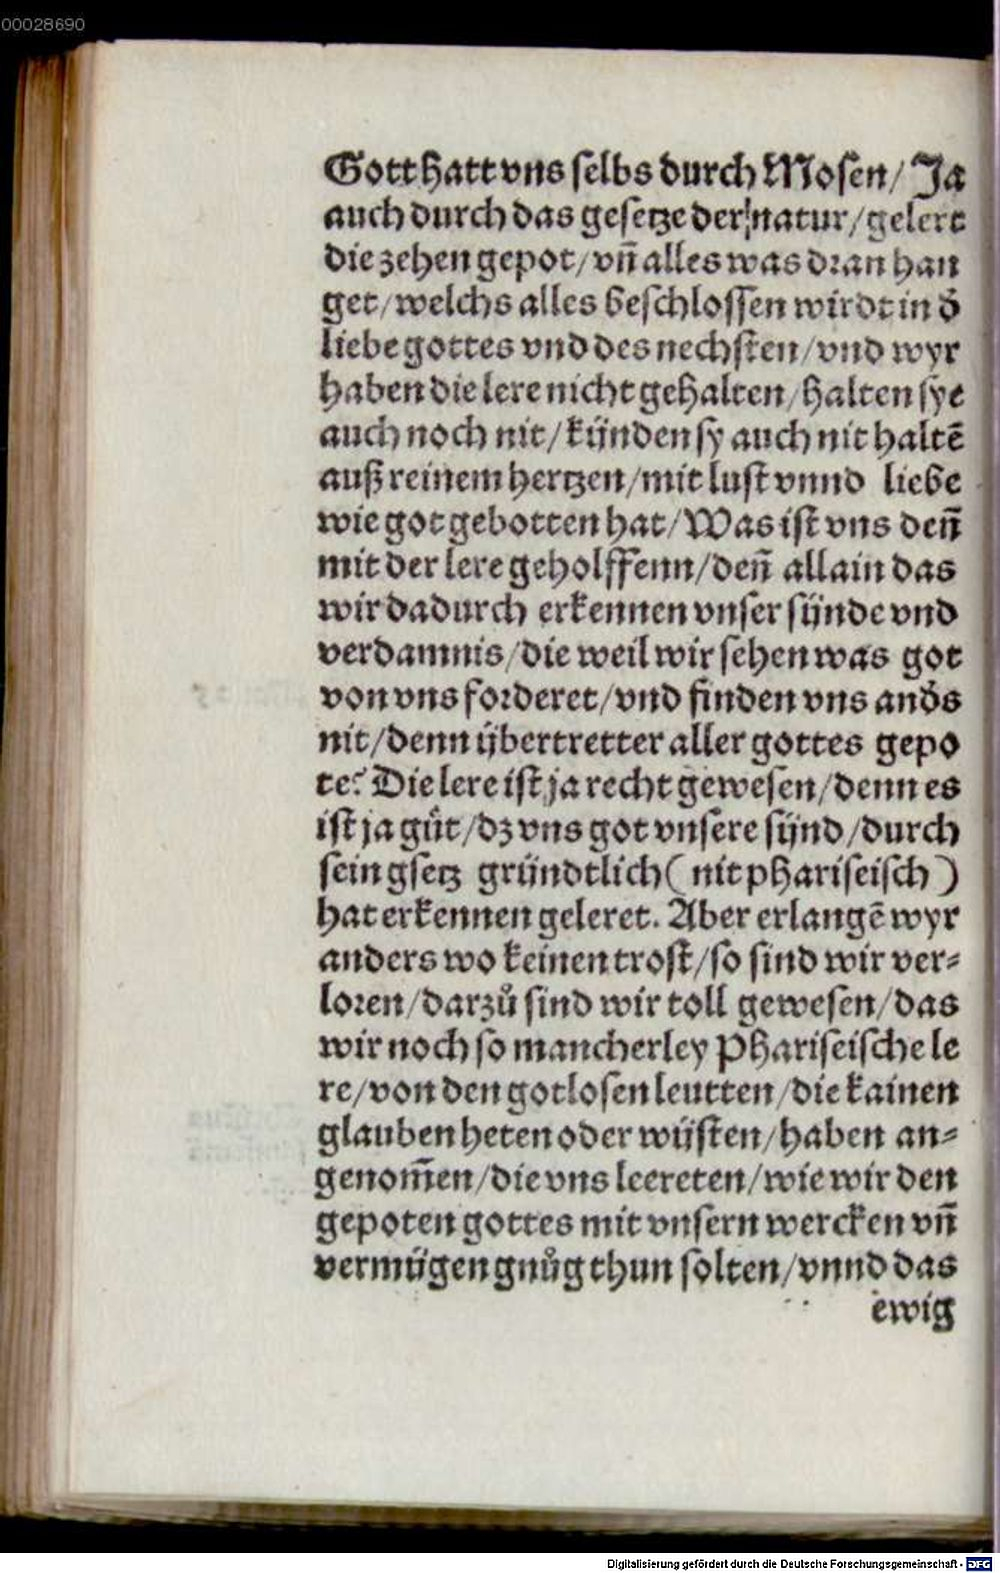 00028690
Gott hatt vns selbs durch Mosen/ Ja
auch durch das gesetze der natur/gelert
die zehen gepot/vñ alles was dran han
get/welchs alles beschlossen wirdt in d̄
liebe gottes vnd des nechsten/vnd wyr
haben die lere nicht gehalten/halten sye
auch noch nit/künden sy auch nit haltē
auß reinem hertzen/mit lust vnnd liebe
wie got gebotten hat/Was ist vns deñ
mit der lere geholffenn/deñ allain das
wir dadurch erkennen vnser sünde vnd
verdamnis/die weil wir sehen was got
von vns forderet/vnd finden vns and̄s
nit/denn übertretter aller gottes gepo
te? Die lere ist ja recht gewesen/denn es
ist ja gůt/dz vns got vnsere sünd/durch
sein gsetz gründtlich ( nit phariseisch )
hat erkennen geleret. Aber erlangē wyr
anders wo keinen trost/so sind wir ver⸗
loren/darzů sind wir toll gewesen/das
wir noch so mancherley Phariseische le
re/von den gotlosen leutten/die kainen
glauben heten oder wüsten/haben an⸗
genom̄en/die vns leereten/wie wir den
gepoten gottes mit vnsern wercken vñ
vermügen gnůg thun solten/vnnd das
ewig
Digitalisierung gefördert durch die Deutsche Forschungsgemeinschaft - DFG